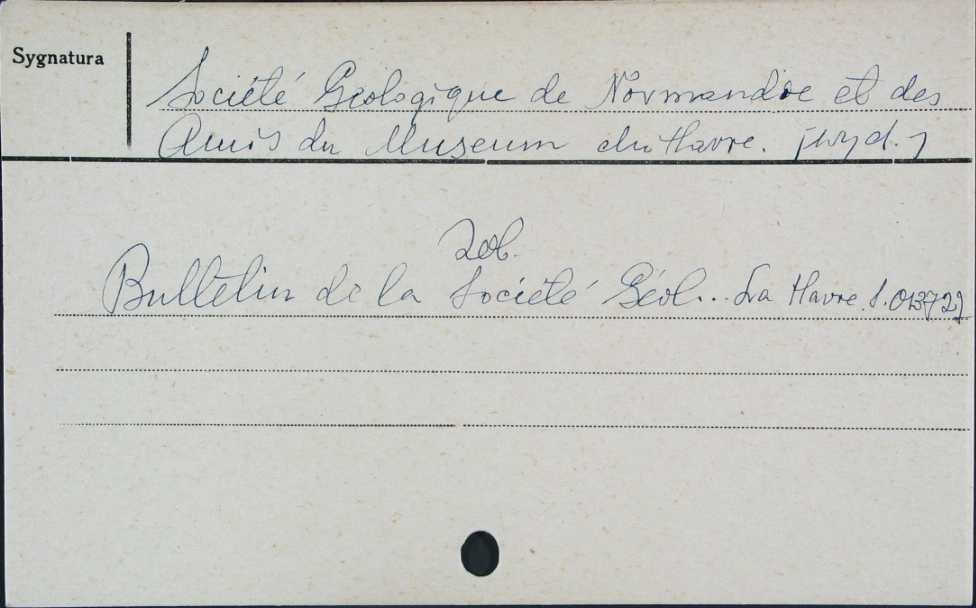 Sygnatura
Société Géologique de Normandie et des
Amis du Museum du Havre. [wyd.]
zob.
Bulletin de la Société Géol... La Havre S.013727